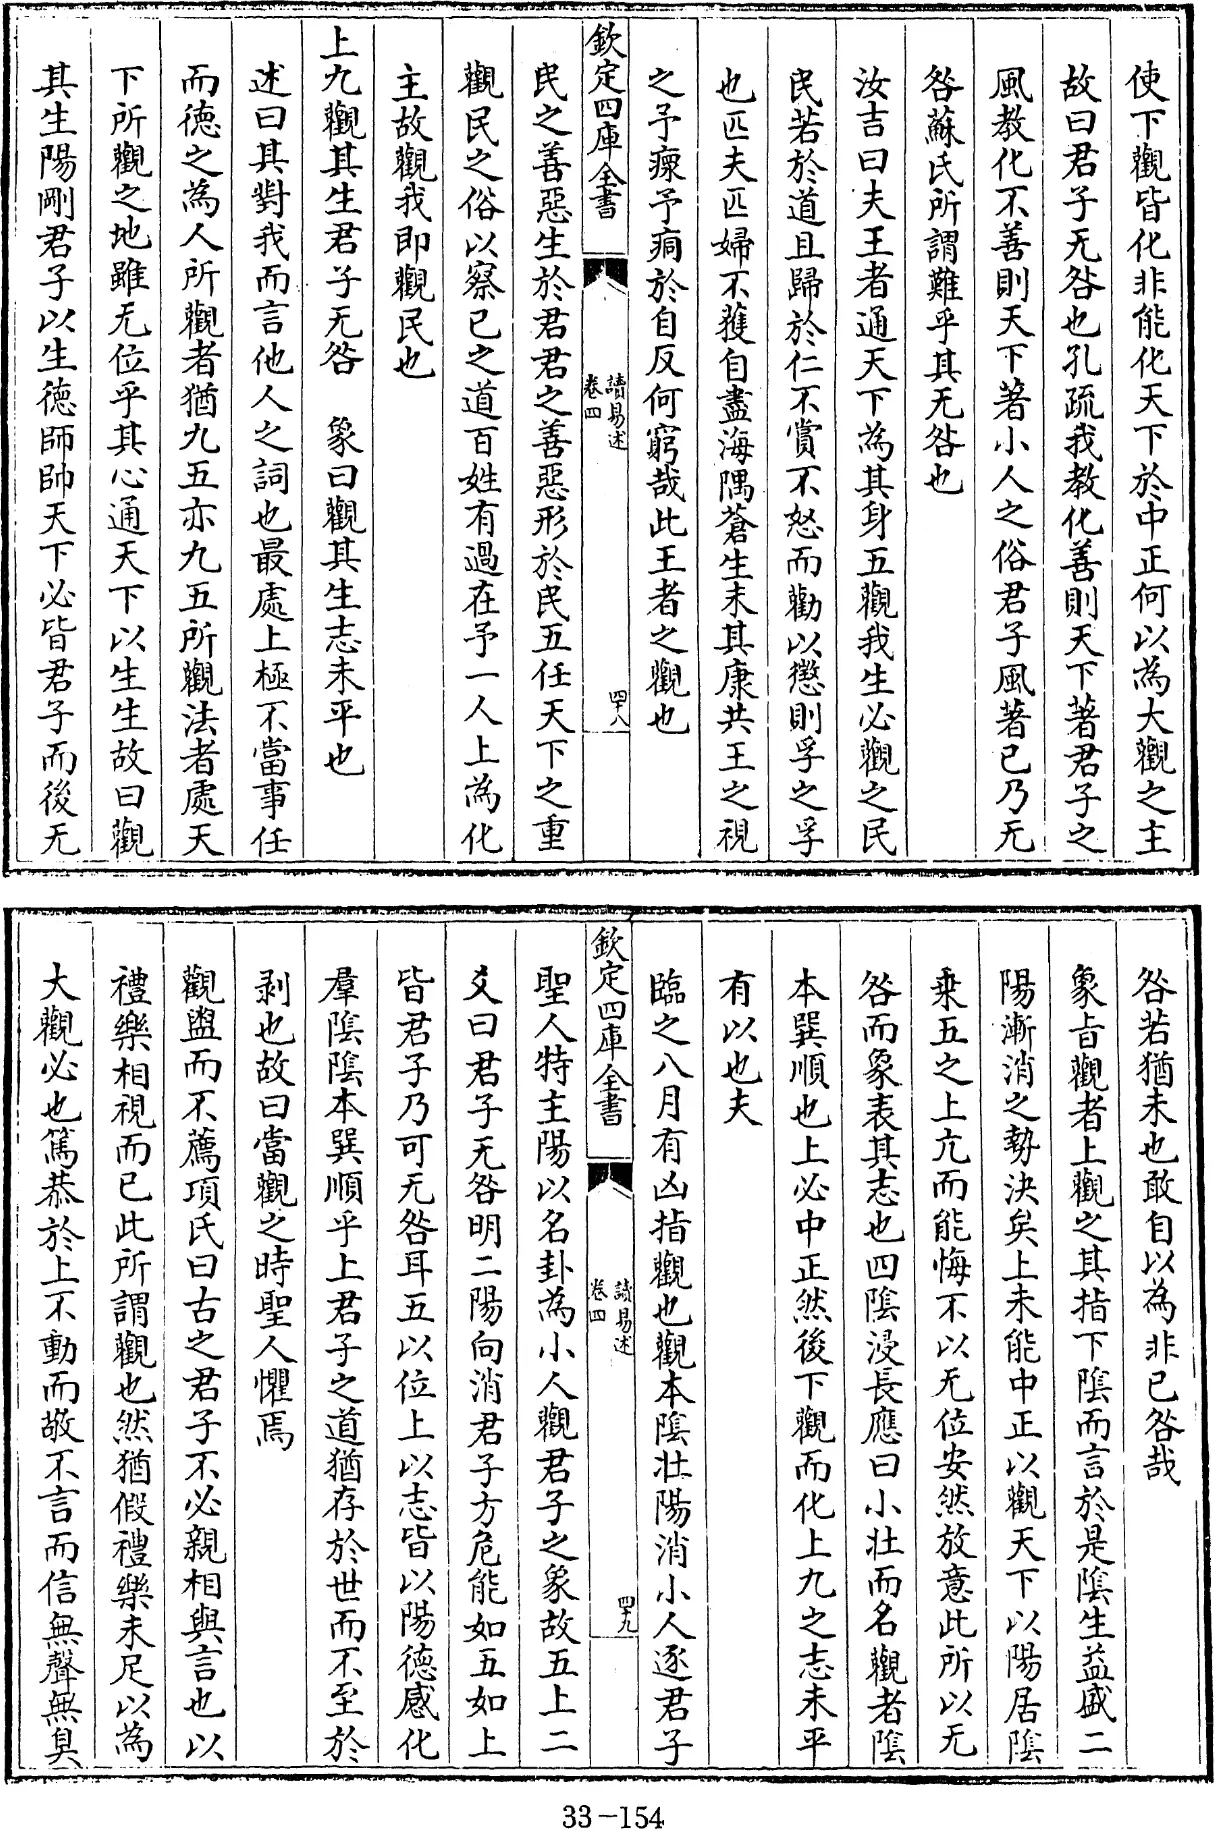 使下觀皆化非能化天下於中正何以為大觀之主
故曰君子无咎也孔疏我教化善則天下著君子之
風教化不善則天下著小人之俗君子風著已乃无
咎蘇氏所謂難乎其无咎也
汝吉曰夫王者通天下為其身五觀我生必觀之民
民若於道且歸於仁不賞不怒而勸以懲則孚之孚
也匹夫匹婦不獲自盡海隅蒼生未其康共王之視
之予瘝予痌於自反何窮哉此王者之觀也
欽定四庫全書
讀易述
卷四
四十八
民之善惡生於君君之善惡形於民五任天下之重
觀民之俗以察已之道百姓有過在予一人上為化
主故觀我即觀民也
上九觀其生君子无咎 象曰觀其生志未平也
述曰其對我而言他人之詞也最處上極不當事任
而徳之為人所觀者猶九五亦九五所觀法者處天
下所觀之地雖无位乎其心通天下以生生故曰觀
其生陽剛君子以生徳師帥天下必皆君子而後无
咎若猶未也敢自以為非已咎哉
象旨觀者上觀之其指下隂而言於是隂生益盛二
陽漸消之勢決矣上未能中正以觀天下以陽居隂
乗五之上亢而能悔不以无位安然放意此所以无
咎而象表其志也四隂浸長應曰小壯而名觀者隂
本巽順也上必中正然後下觀而化上九之志未平
有以也夫
臨之八月有凶指觀也觀本隂壯陽消小人逐君子
欽定四庫全書
讀易述
卷四
四十九
聖人特主陽以名卦為小人觀君子之象故五上二
爻曰君子无咎明二陽向消君子方危能如五如上
皆君子乃可无咎耳五以位上以志皆以陽徳感化
羣隂隂本巽順乎上君子之道猶存於世而不至於
剥也故曰當觀之時聖人懼焉
觀盥而不薦項氏曰古之君子不必親相與言也以
禮樂相視而已此所謂觀也然猶假禮樂未足以為
大觀必也篤恭於上不動而敬不言而信無聲無臭
33-154